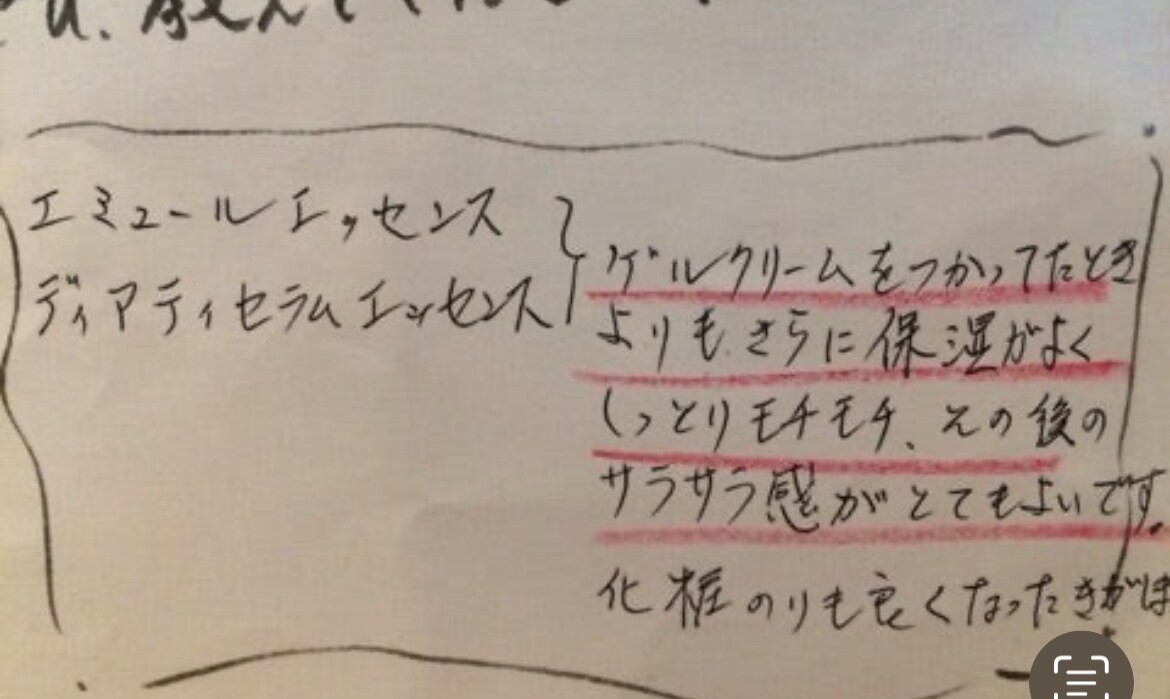 教えてくだ
エミュールエッセンス
ディアティセラムエッセンス
ゲルクリームをつかってたとき
よりも、さらに保湿がよく
しっとりモチモチ、その後の
サラサラ感がとてもよいです。
化粧のりも良くなったきがしま